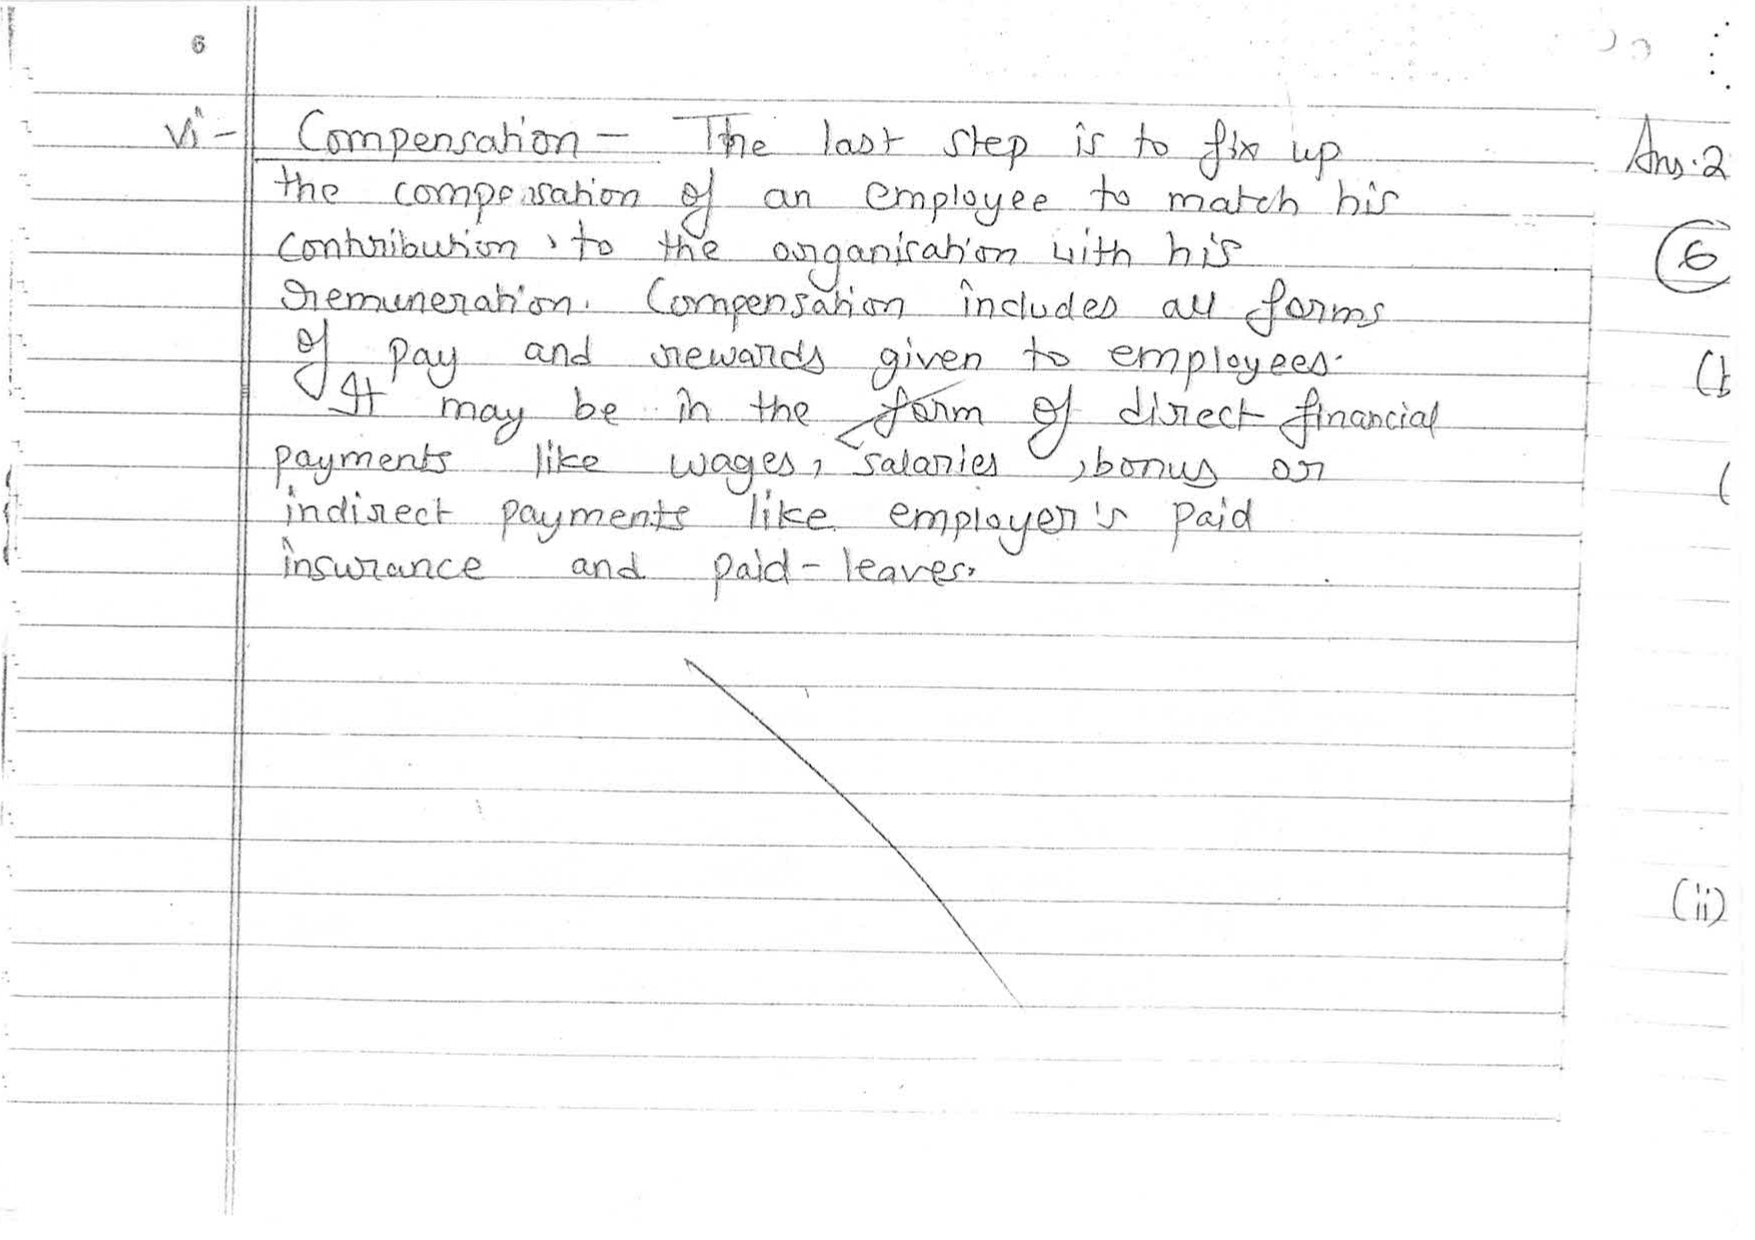 6
vi - Compensation - The last step is to fix up
the compensation of an employee to match his
contribution, to the organisation with his
remuneration. Compensation includes all forms
of pay and rewards given to employees.
It may be in the form of direct financial
payments like wages, salaries, bonus or
indirect payments like employer's paid
insurance and paid-leaves.
Ans.2
6
(ii)